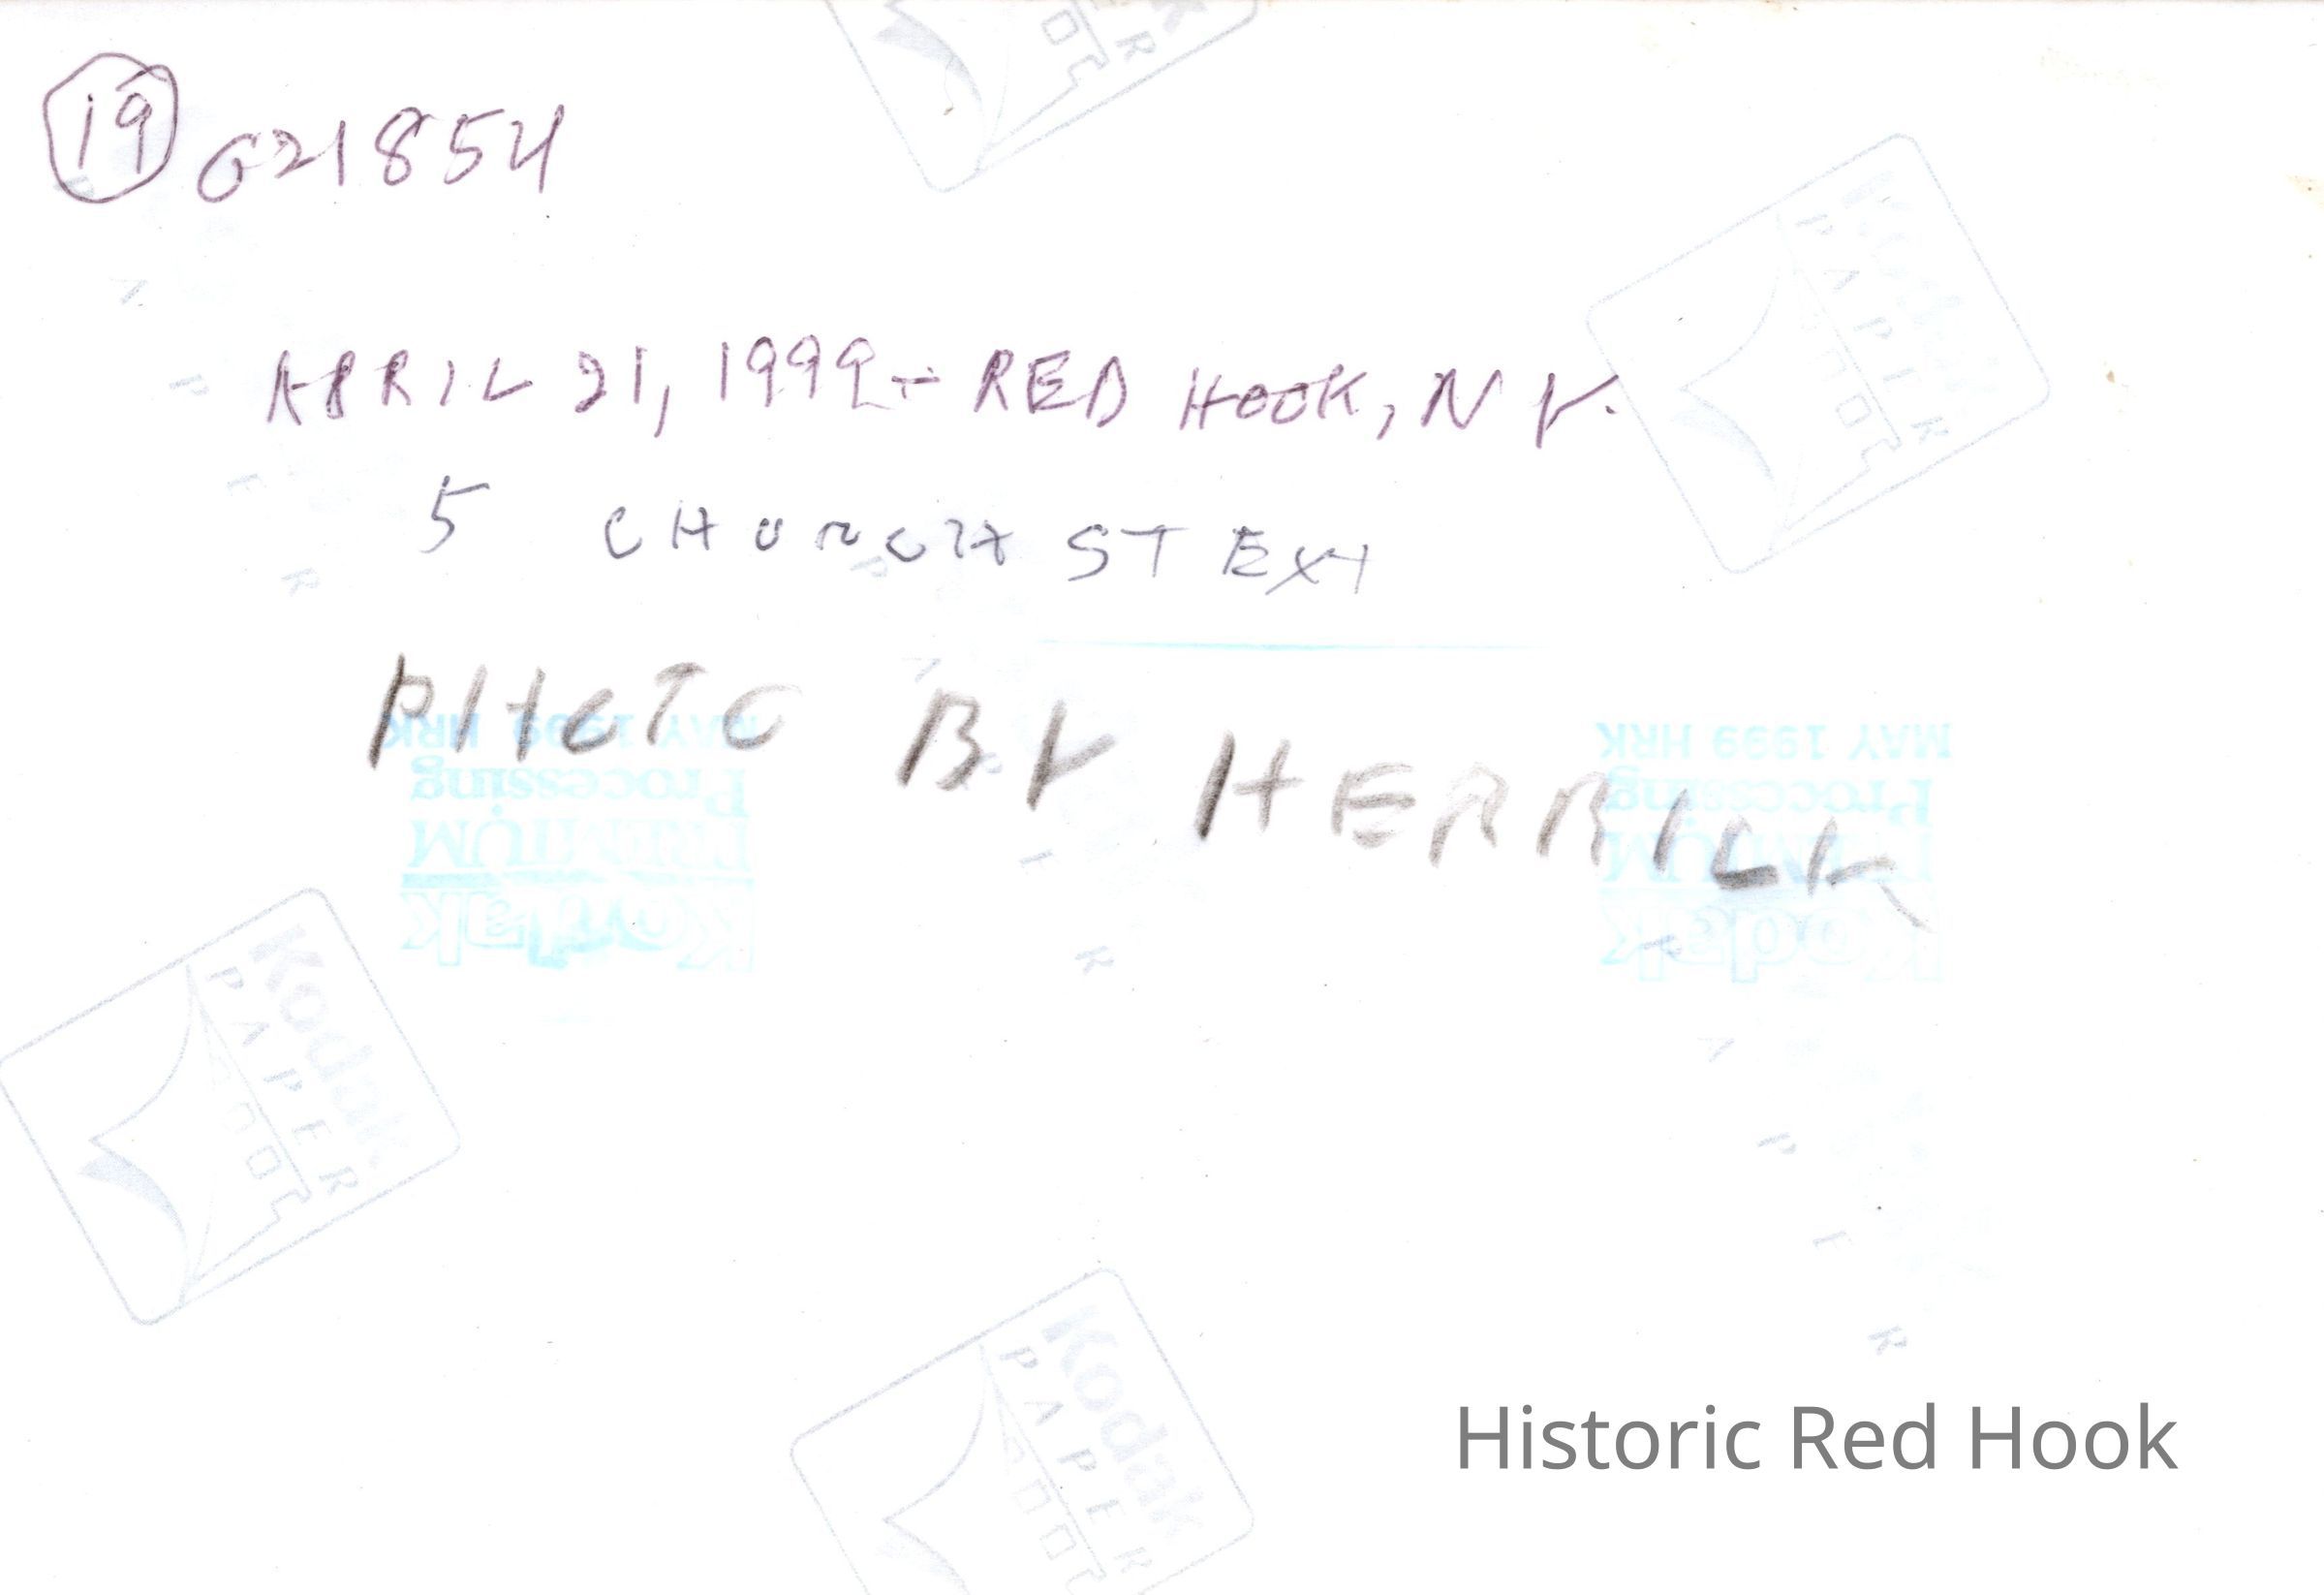 19 G21854
APRIL 21, 1999 - RED HOOK, NY.
5 CHURCH ST EXT
PHOTO BY HERRICK
MAY 1999 HRK
Processing
PREMIUM
Kodak
MAY 1999 HRK
Processing
PREMIUM
Kodak
Kodak
PAPER
Kodak
PAPER
Kodak
PAPER
Historic Red Hook